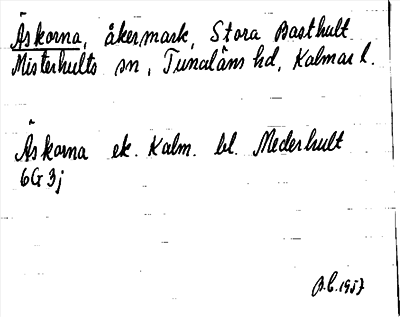 Äskorna, åkermark, Stora Basthult
Misterhults sn, Tunaläns hd, Kalmar l.
Äskorna ek. Kalm. bl. Mederhult
6G3j
B.C. 1957